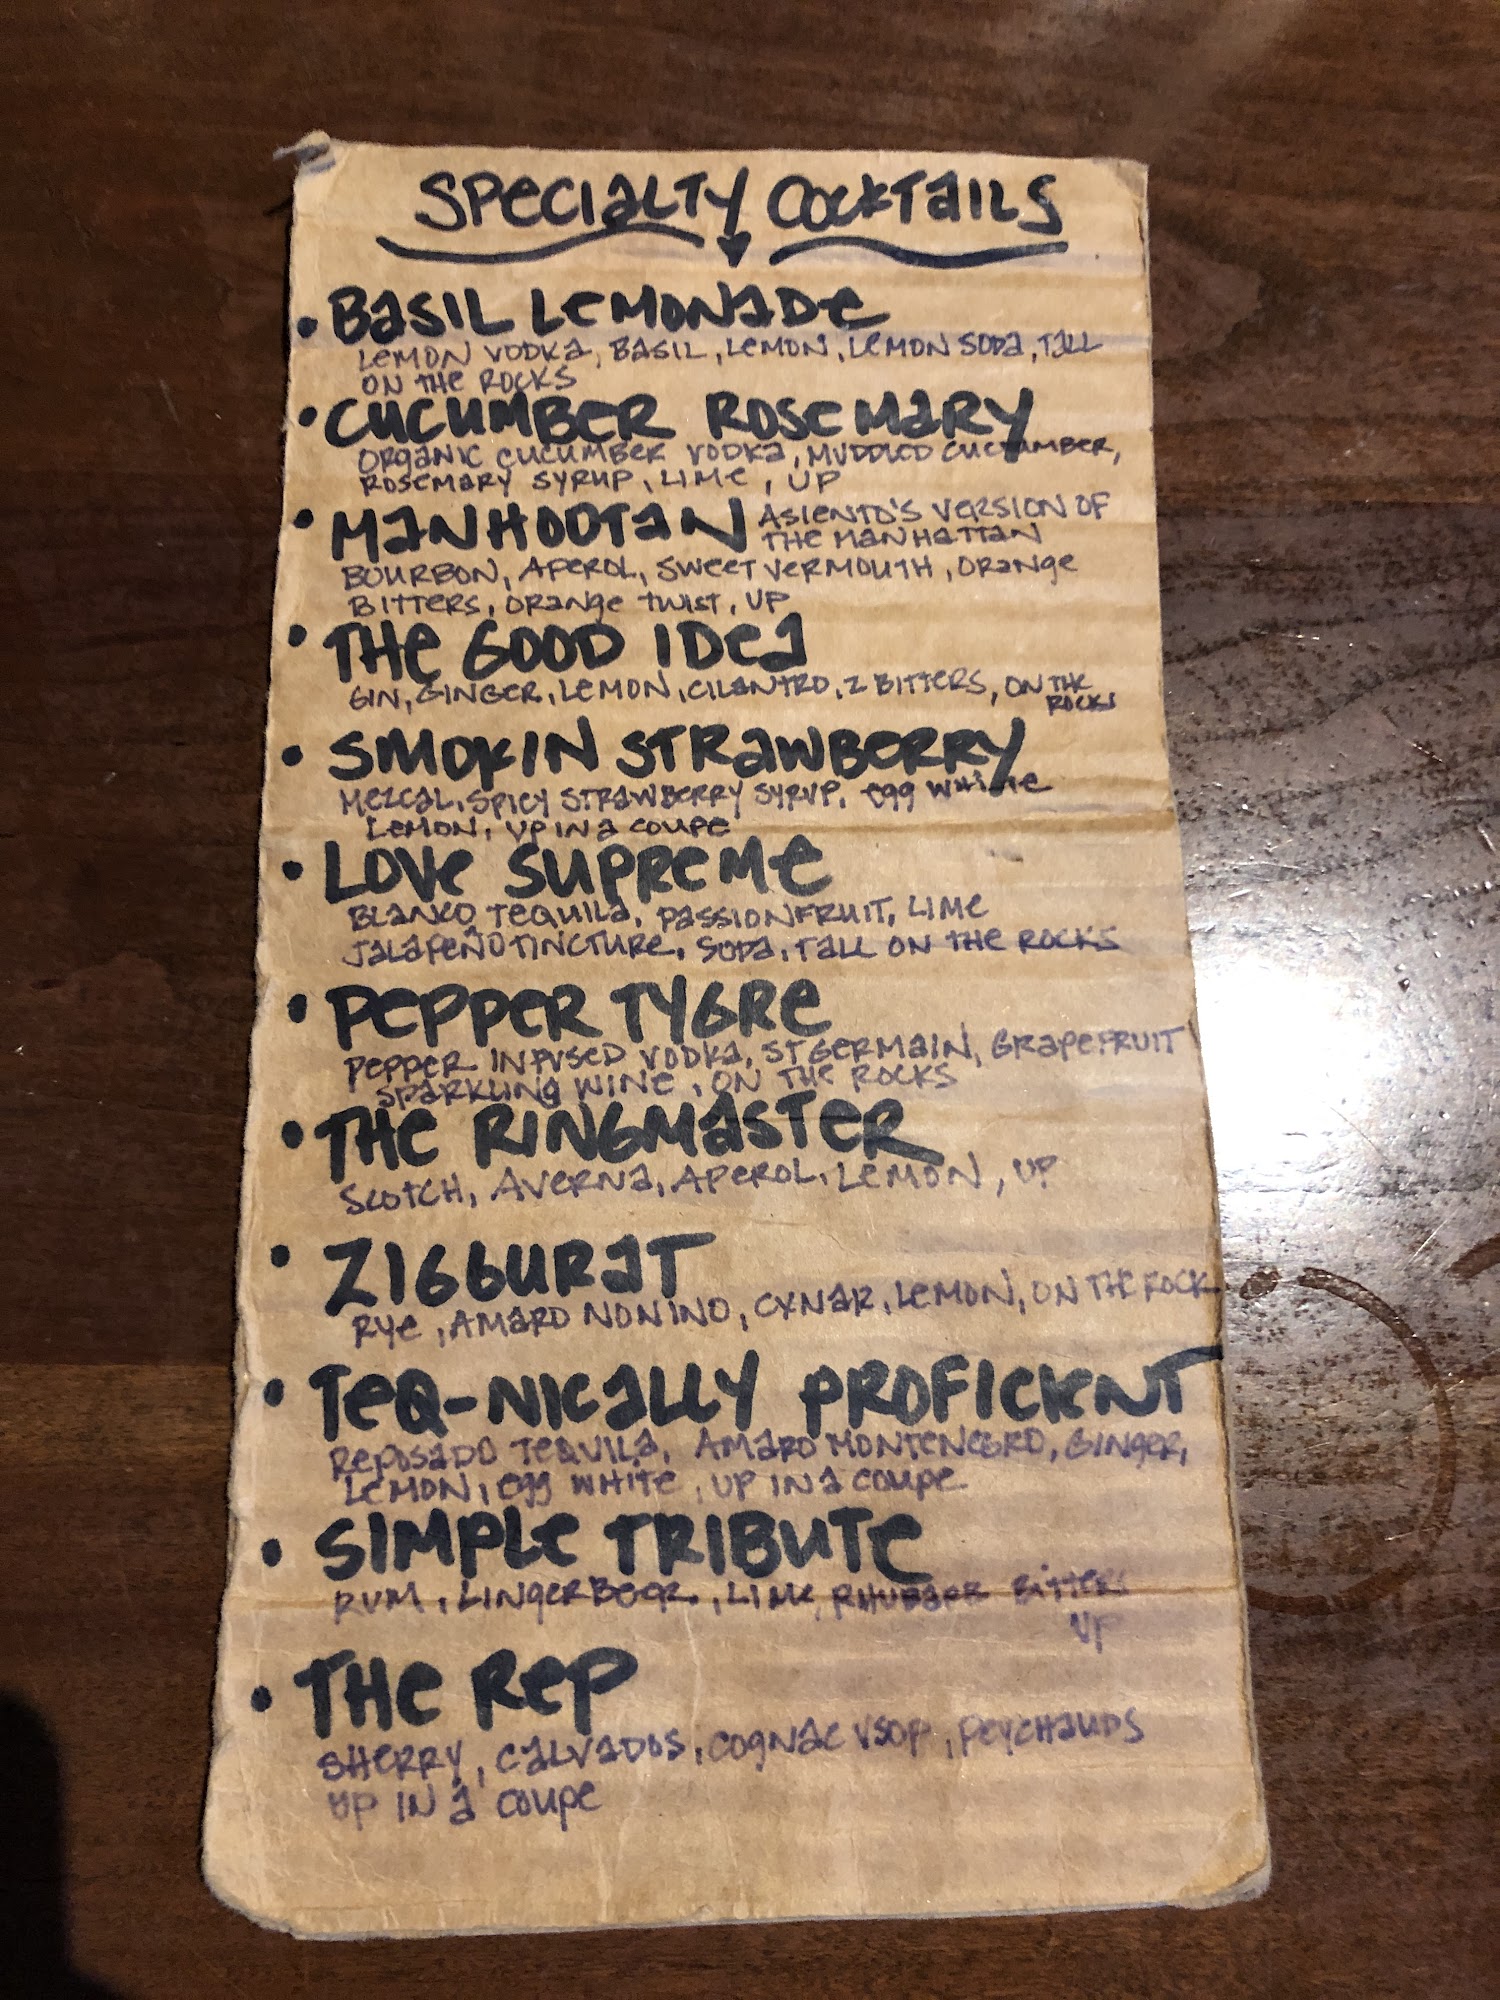 SPECIALTY COCKTAILS
• BASIL LEMONADE
LEMON VODKA, BASIL, LEMON, LEMON SODA, TALL
ON THE ROCKS
• CUCUMBER ROSEMARY
ORGANIC CUCUMBER VODKA, MUDDLED CUCUMBER,
ROSEMARY SYRUP, LIME, UP
• MANHOOTAN ASIENTO'S VERSION OF
THE MANHATTAN
BOURBON, APEROL, SWEET VERMOUTH, ORANGE
BITTERS, ORANGE TWIST, UP
• THE GOOD IDEA
GIN, GINGER, LEMON, CILANTRO, 2 BITTERS, ON THE
ROCKS
• SMOKIN STRAWBERRY
MEZCAL, SPICY STRAWBERRY SYRUP, EGG WHITE
LEMON, UP IN A COUPE
• LOVE SUPREME
BLANCO TEQUILA, PASSIONFRUIT, LIME
JALAPEÑO TINCTURE, SODA, TALL ON THE ROCKS
• PEPPER TYGRE
PEPPER INFUSED VODKA, ST GERMAIN, GRAPEFRUIT
SPARKLING WINE, ON THE ROCKS
• THE RINGMASTER
SCOTCH, AVERNA, APEROL, LEMON, UP
• ZIGGURAT
RYE, AMARO NONINO, CYNAR, LEMON, ON THE ROCK
• TEQ-NICALLY PROFICIENT
REPOSADO TEQUILA, AMARO MONTENEGRO, GINGER,
LEMON, EGG WHITE, UP IN A COUPE
• SIMPLE TRIBUTE
RUM, LIME, BITTERS
UP
• THE REP
SHERRY, CALVADOS, COGNAC VSOP, PEYCHAUDS
UP IN A COUPE